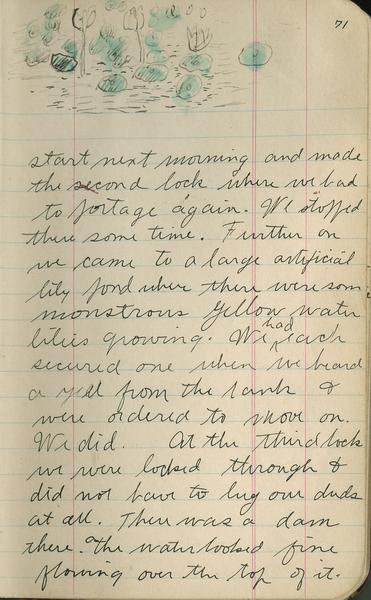 71
start next morning and made
the second lock where we had
to portage again. We stopped
there some time. Further on
we came to a large artificial
lily pond where there were som
monstrous yellow water
lilies growing. We had each
secured one when we heard
a yell from the bank &
were ordered to move on.
We did. At the third lock
we were locked through &
did not have to lug our duds
at all. There was a dam
there. The water looked fine
flowing over the top of it.